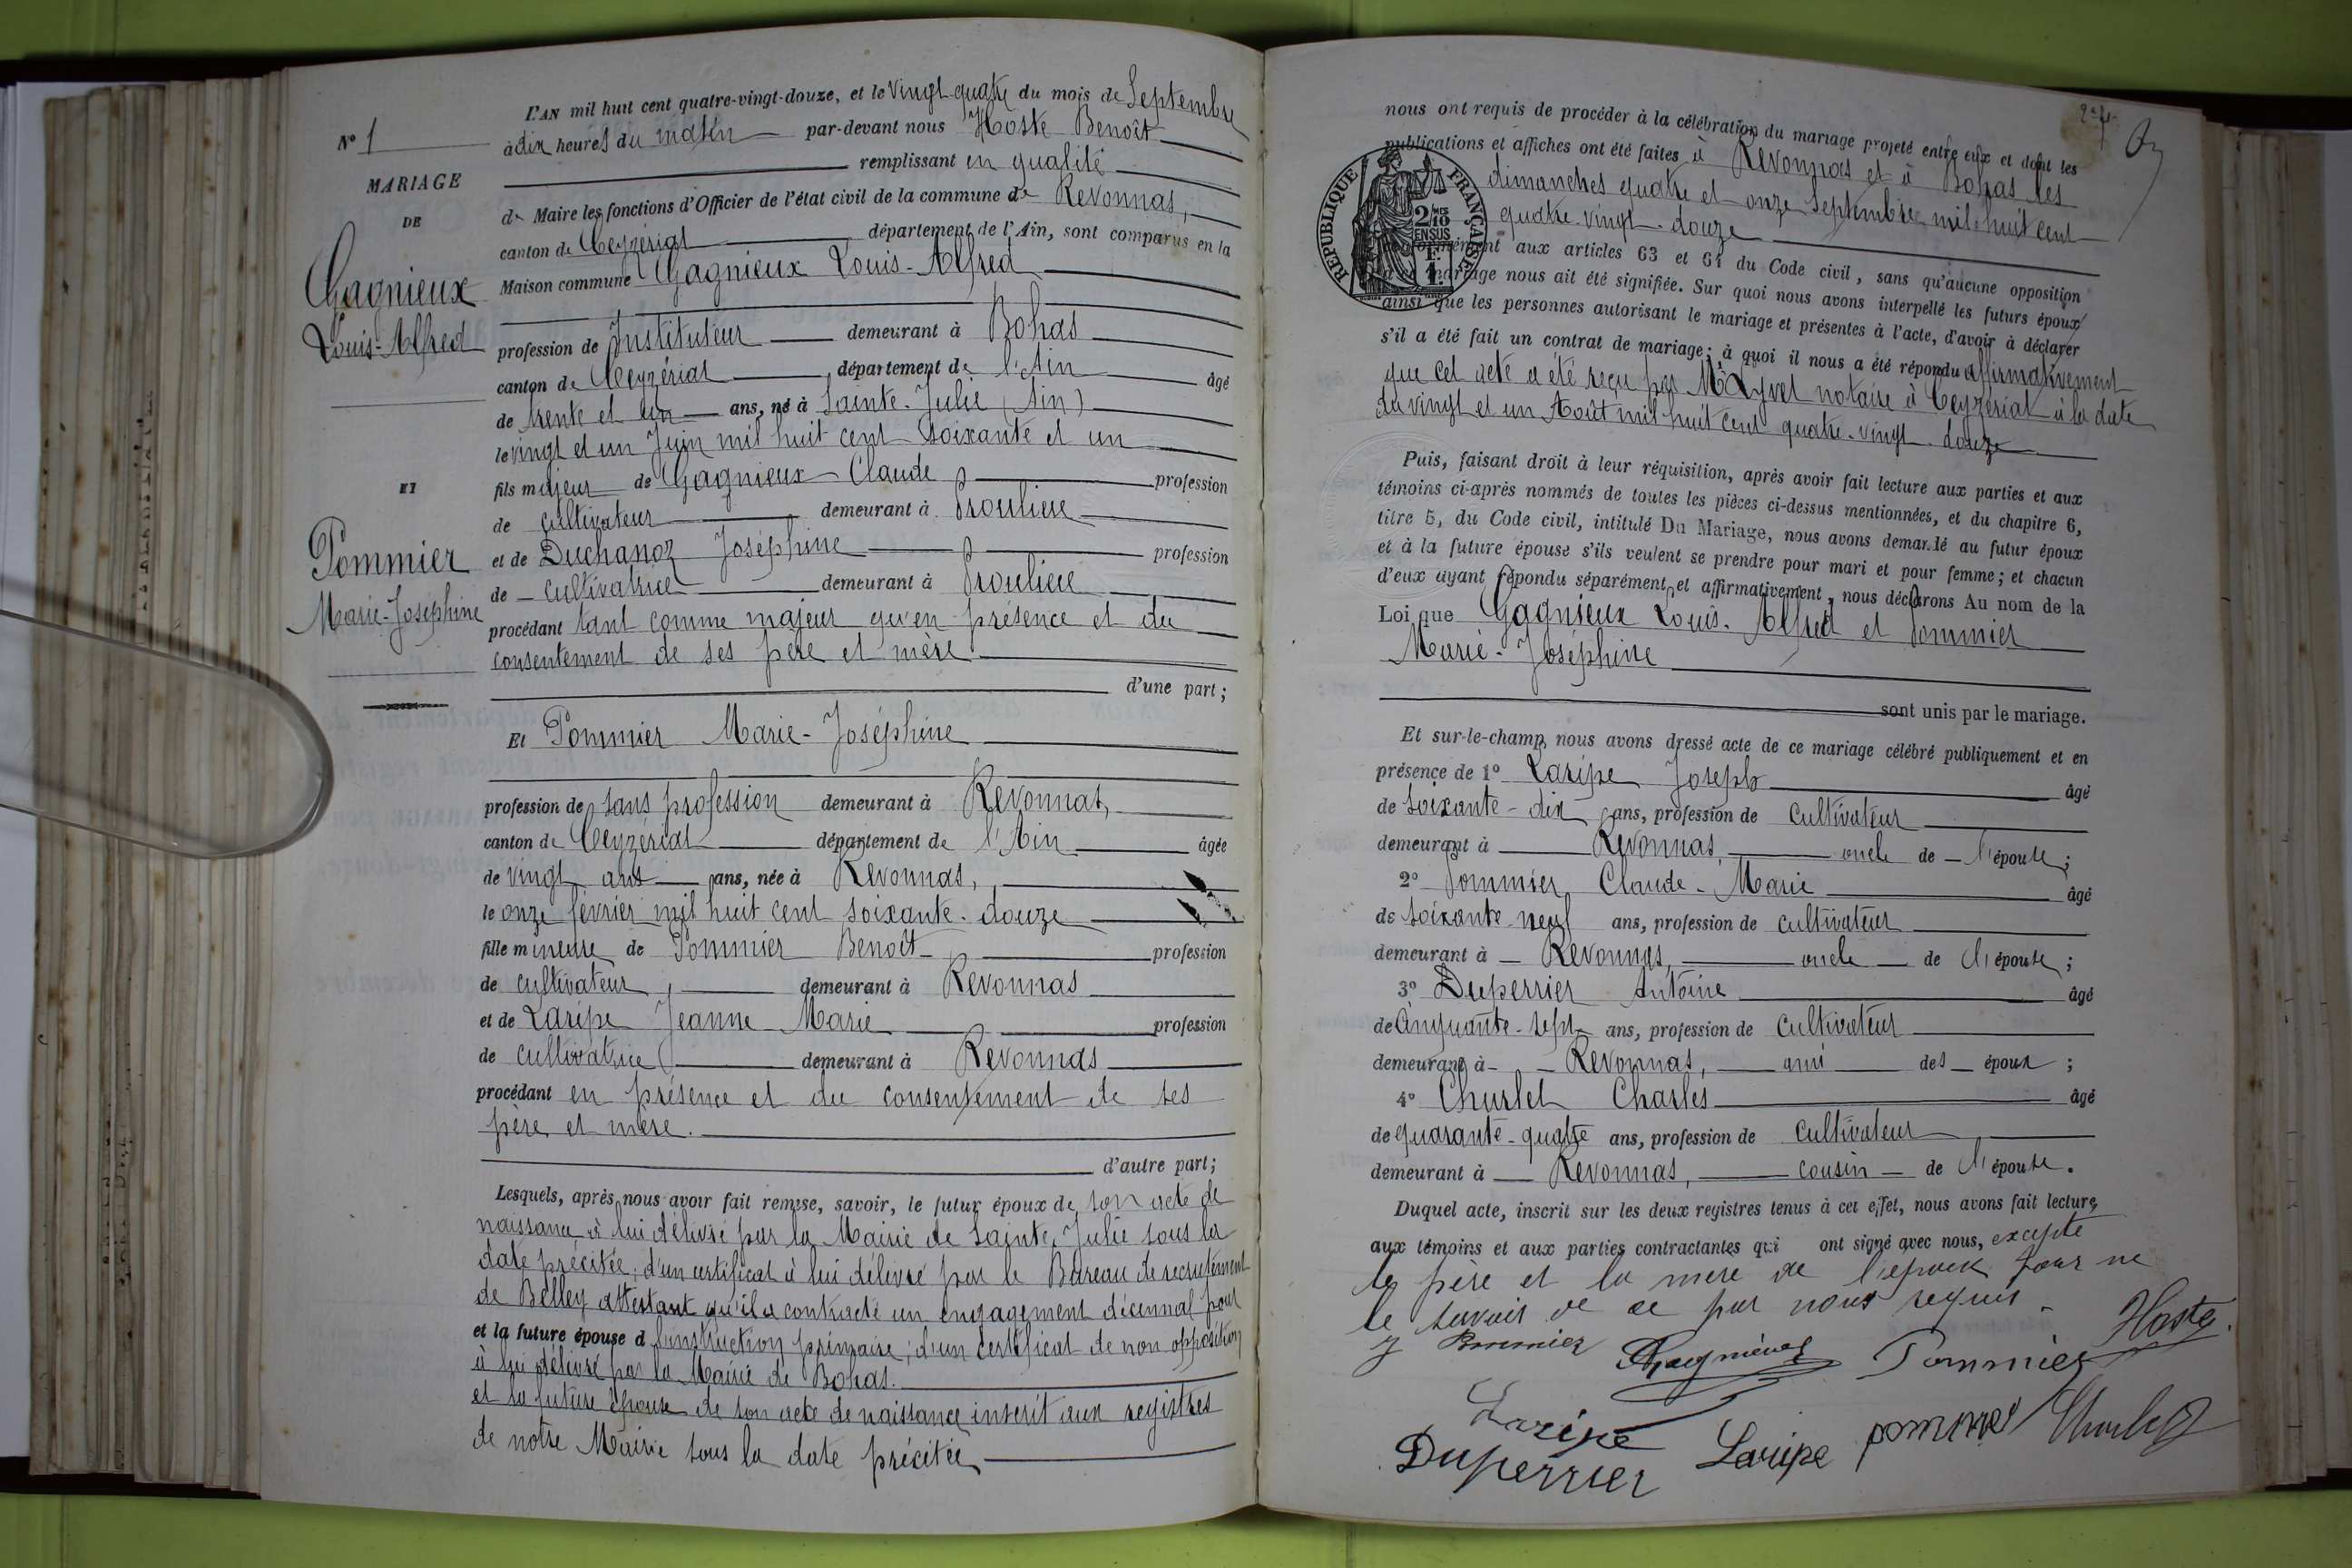 N° 1
MARIAGE
DE
Gagnieux
Louis-Alfred
ET
Pommier
Marie-Joséphine
L'AN mil huit cent quatre-vingt-douze, et le vingt-quatre du mois de Septembre
à dix heures du matin par-devant nous Hoste Benoît
remplissant en qualité
de Maire les fonctions d'Officier de l'état civil de la commune de Revonnas,
canton de Ceyzériat département de l'Ain, sont comparus en la
Maison commune Gagnieux Louis-Alfred
profession de Instituteur demeurant à Bohas
canton de Ceyzériat département de l'Ain âgé
de trente et un ans, né à Sainte-Julie (Ain)
le vingt et un Juin mil huit cent soixante et un
fils majeur de Gagnieux Claude profession
de cultivateur demeurant à Proulieu
et de Duchanoz Joséphine profession
de cultivatrice demeurant à Proulieu
procédant tant comme majeur qu'en présence et du
consentement de ses père et mère
d'une part;
Et Pommier Marie-Joséphine
profession de sans profession demeurant à Revonnas,
canton de Ceyzériat département de l'Ain âgée
de vingt ans ans, née à Revonnas,
le onze février mil huit cent soixante-douze
fille mineure de Pommier Benoît profession
de cultivateur, demeurant à Revonnas
et de Laripe Jeanne-Marie profession
de cultivatrice demeurant à Revonnas
procédant en présence et du consentement de ses
père et mère.
d'autre part;
Lesquels, après nous avoir fait remise, savoir, le futur époux de son acte de
naissance à lui délivré par la Mairie de Sainte-Julie sous la
date précitée; d'un certificat à lui délivré par le Bureau de recrutement
de Belley attestant qu'il a contracté un engagement décennal pour
et la future épouse d l'instruction primaire; d'un certificat de non opposition
à lui délivré par la Mairie de Bohas.
et la future épouse de son acte de naissance inscrit aux registres
de notre Mairie sous la date précitée
nous ont requis de procéder à la célébration du mariage projeté entre eux et dont les
publications et affiches ont été faites à Revonnas et à Bohas les
dimanches quatre et onze Septembre mil huit cent
quatre-vingt-douze
REPUBLIQUE FRANÇAISE
2/10 EN SUS
conformément aux articles 63 et 64 du Code civil, sans qu'aucune opposition
mariage nous ait été signifiée. Sur quoi nous avons interpellé les futurs époux
ainsi que les personnes autorisant le mariage et présentes à l'acte, d'avoir à déclarer
s'il a été fait un contrat de mariage; à quoi il nous a été répondu affirmativement
que cet acte a été reçu par Me notaire à Ceyzériat à la date
du vingt et un Août mil huit cent quatre-vingt-douze
Puis, faisant droit à leur réquisition, après avoir fait lecture aux parties et aux
témoins ci-après nommés de toutes les pièces ci-dessus mentionnées, et du chapitre 6,
titre 5, du Code civil, intitulé Du Mariage, nous avons demandé au futur époux
et à la future épouse s'ils veulent se prendre pour mari et pour femme; et chacun
d'eux ayant répondu séparément et affirmativement, nous déclarons Au nom de la
Loi que Gagnieux Louis-Alfred et Pommier
Marie-Joséphine
sont unis par le mariage.
Et sur-le-champ, nous avons dressé acte de ce mariage célébré publiquement et en
présence de 1° Laripe Joseph âgé
de soixante-dix ans, profession de cultivateur
demeurant à Revonnas, oncle de l'épouse;
2° Pommier Claude-Marie âgé
de soixante-neuf ans, profession de cultivateur
demeurant à Revonnas, oncle de l'épouse;
3° Duperrier Antoine âgé
de cinquante-sept ans, profession de cultivateur
demeurant à Revonnas, ami des époux;
4° Churlet Charles âgé
de quarante-quatre ans, profession de cultivateur
demeurant à Revonnas, cousin de l'épouse.
Duquel acte, inscrit sur les deux registres tenus à cet effet, nous avons fait lecture
aux témoins et aux parties contractantes qui ont signé avec nous, excepté
le père et la mère de l'époux pour ne
le savoir de ce par nous requis.
J Pommier Gagnieux Pommier Hoste
Laripe
Duperrier Laripe pommier Churlet